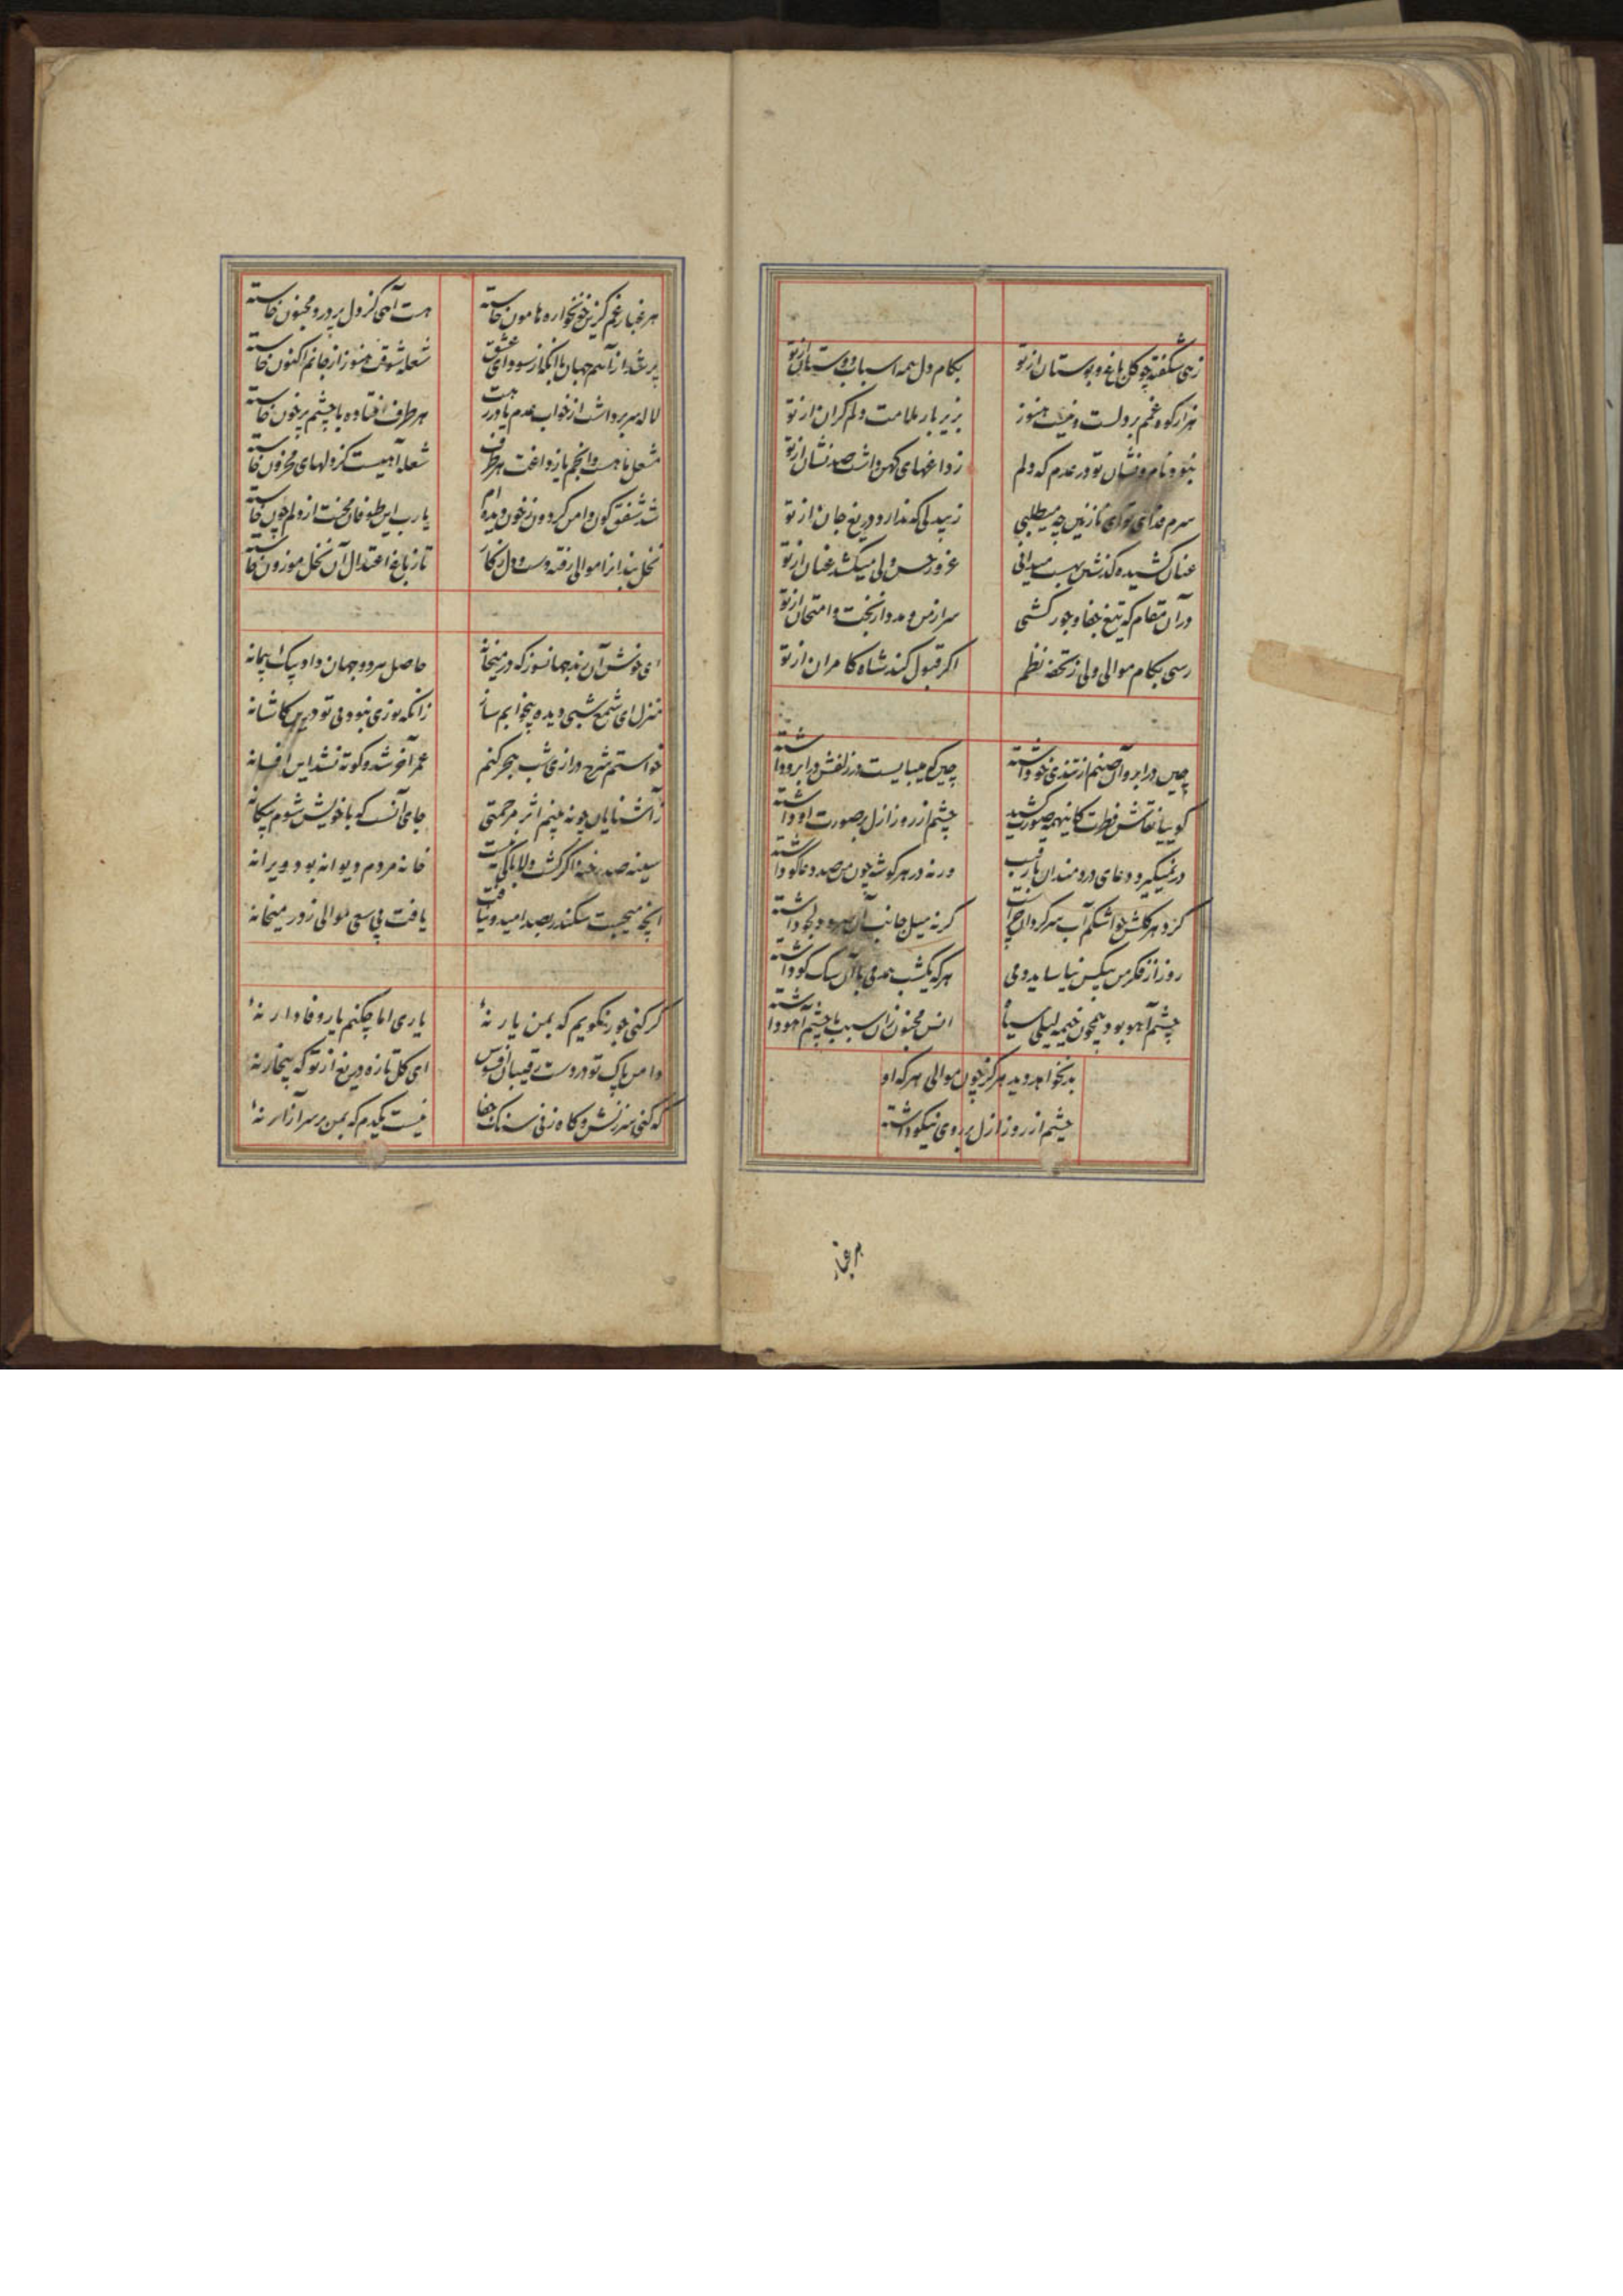 زهی شکفته چو گل باغ و بوستان از تو
بکام دل همه اسباب دوستان از تو
هزار کوه غمم بر دلست و نیست هنوز
بزیر بار ملامت دلم کران از تو
نبود نام و نشان تو در عدم که دلم
ز داغهای کهن داشت صد نشان از تو
سرم فدای تو ای نازنین چه میطلبی
ز بیدلی که ندارد دریغ جان از تو
عنان کشیده گذشتن بهست میدانی
غرور حسن ولی میکشد عنان از تو
در آن مقام که تیغ جفا و جور کشی
سر از من و مدد از بخت و امتحان از تو
رسی بکام موالی ولی ز تحفه نظم
اگر قبول کند شاه کامران از تو
چین در ابرو آن صنم از تندی خو داشته
چین که میبایست در زلفش در ابرو داشته
گوییا نقاش فطرت کاینهمه صورت کشید
چشم از روز ازل بر صورت او داشته
در نمیگیرد دعای دردمندان با رقیب
ورنه در هر گوشه چون من صد دعاگو داشته
گرد هر گلشن چو اشکم آب سرگردان چراست
گرنه میل جانب آن سرو دلجو داشته
روز از فکر من بیکس نیاساید دمی
هر که یکشب همدمی با آن سگ کو داشته
چشم آهو بود همچون خیمه لیلی سیاه
انس مجنون زان سبب با چشم آهو داشته
بد نخواهد دید هرگز چون موالی هر که او
چشم از روز ازل بر روی نیکو داشته
هر غبار
هر غبار غم کزین خونخواره هامون خاسته
هست آهی کز دل پر درد مجنون خاسته
پر شد از آهم جهان با آنکه از سودای عشق
شعله شوقت هنوز از جانم اکنون خاسته
لاله سر برداشت از خواب عدم یا در
هر طرف افتاده با چشم پر خون خاسته
مشعل ماهست و انجم یا ز داغت هر طرف
شعله آهیست کز دلهای محزون خاسته
شد شفق گون دامن گردون ز خون دیده ام
یارب این طوفان محنت از دلم چون خاسته
نخل بند از را موالی رفته دست و دل ز کار
تا ز باغ اعتدال آن نخل موزون خاسته
ای خوش آن رند جهانسوز که در میخانه
حاصل هر دو جهان داد بیک پیمانه
منزل ای شمع شبی دیده بیخوابم ساز
زانکه نوری نبود بی تو درین کاشانه
خواستم شرح درازی شب هجر کنم
عمر آخر شد و کوته نشد این افسانه
ز آشنایان چو نه بینم اثر مرحمتی
جای آنست که با خویش شوم بیگانه
سینه صد رخنه اگر گشت دلا باکی نیست
خانه مردم دیوانه بود ویرانه
آنچه میجست سکندر بصد امید و نیافت
یافت بی سعی موالی ز در میخانه
گر کنی جور نگویم که بمن یار نهٔ
یاری اما چکنم یار وفادار نهٔ
دامن پاک تو در دست رقیبان افسوس
ای گل تازه دریغ از تو که بیخار نهٔ
گه کنی سرزنش و گاه زنی سنگ جفا
نیست یکدم که بمن بر سر آزار نهٔ